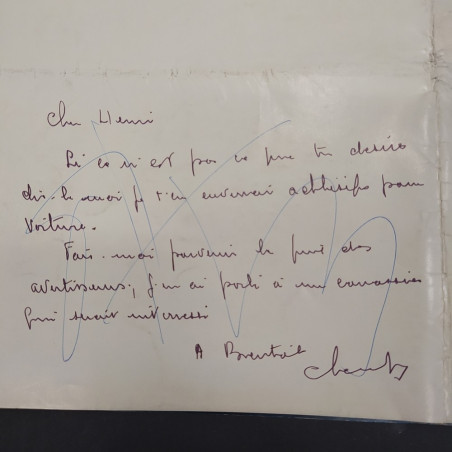 Cher Henri
Si ce n'est pas ce que tu désires
dis-le moi je t'en enverrai adhésifs pour
voiture.
Fais-moi parvenir le prix des
avertisseurs, j'en ai parlé à un
qui serait intéressé
A Bientôt